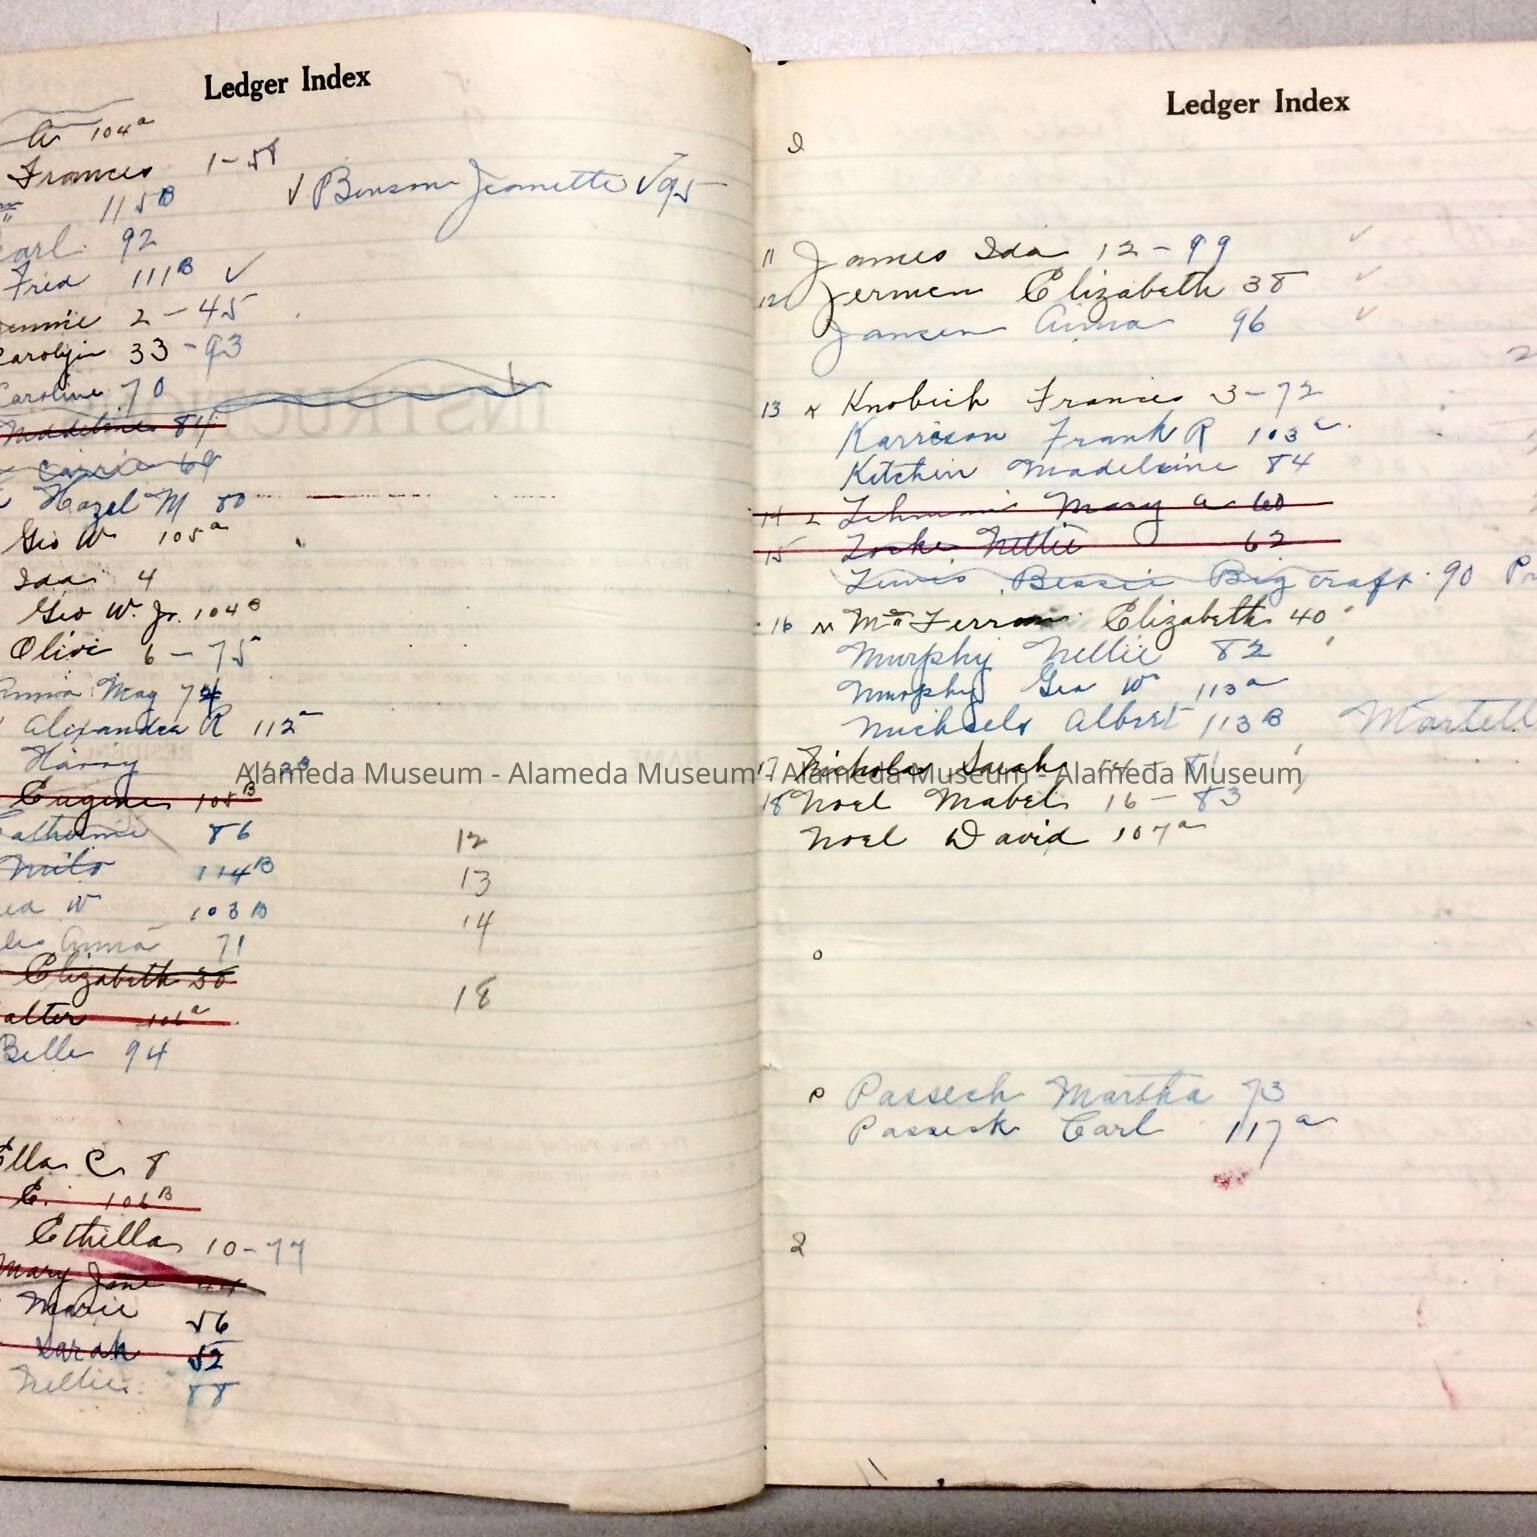 Ledger Index
A 104a
Frances 1-58
✓ Benson Jeanette ✓95
" 115B
92
Fred 111B ✓
2-45
33-93
Caroline 70
84
Carrie 69
Hazel M 80
Geo W 105a
Ida 4
Geo W. Jr. 104B
Olive 6-75
Anna May 74
Alexander R 112a
Harry
Eugene 105B
Catherine 86
Milo 114B
W 103B
Anna 71
Elizabeth 50
106a
Belle 94
12
13
14
18
Ella C. 8
E. 106B
Ethella 10-77
Mary Jane 44
Marie 56
Sarah 52
Nellie 88
Ledger Index
I
11 James Ida 12-99
12 Jermen Elizabeth 38
Jansen Anna 96
13 K Knobich Frances 3-72
Karrison Frank R 103a
Kitchin Madeleine 84
14 L Lehmann Mary A 60
15 Locke Nettie 62
Lewis Bessie Bigcraft 90
16 M Elizabeth 40
Murphy Nellie 82
Murphy Geo W 113a
Michaels Albert 113B Martell
17 Nicholas Sarah 14-81
18 Noel Mabel 16-83
Noel David 107a
O
P Passeck Martha 73
Passeck Carl 117a
Q
Alameda Museum - Alameda Museum - Alameda Museum - Alameda Museum